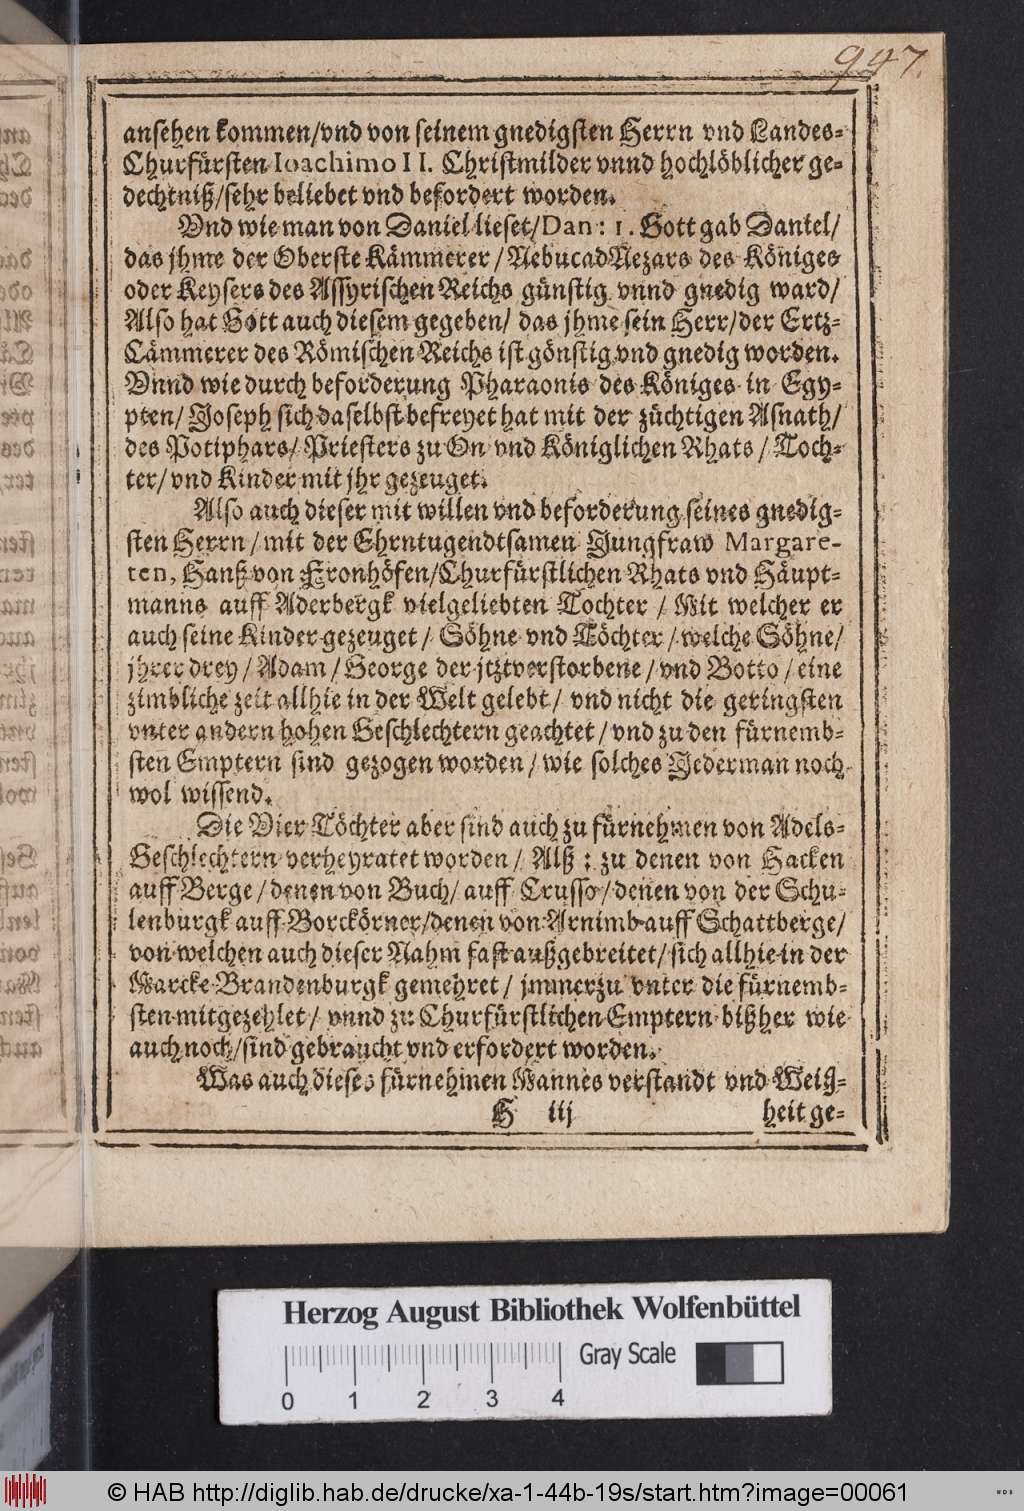 947.
ansehen kommen/vnd von seinem gnedigsten Herrn vnd Landes-
Churfürsten Ioachimo II. Christmilder vnnd hochlöblicher ge-
dechtniß/sehr beliebet vnd befordert worden.
Vnd wie man von Daniel lieset/Dan: 1. Gott gab Daniel/
das jhme der Oberste Kämmerer/NebucadNezars des Königes
oder Keysers des Assyrischen Reichs günstig vnnd gnedig ward/
Also hat Gott auch diesem gegeben/ das jhme sein Herr/der Ertz-
Cämmerer des Römischen Reichs ist gönstig vnd gnedig worden.
Vnnd wie durch beforderung Pharaonis des Königes in Egy-
pten/ Joseph sich daselbst befreyet hat mit der züchtigen Asnath/
des Potiphars/ Priesters zu On vnd Königlichen Rhats/ Toch-
ter/ vnd Kinder mit jhr gezeuget.
Also auch dieser mit willen vnd beforderung seines gnedig-
sten Herrn/mit der Ehrntugendtsamen Jungfraw Margare-
ten, Hanß von Fronhöfen/Churfürstlichen Rhats vnd Häupt-
manns auff Aderbergk vielgeliebten Tochter / Mit welcher er
auch seine Kinder gezeuget / Söhne vnd Töchter / welche Söhne/
jhrer drey / Adam / George der jtztverstorbene / vnd Botto / eine
zimbliche zeit allhie in der Welt gelebt/ vnd nicht die geringsten
vnter andern hohen Geschlechtern geachtet / vnd zu den fürnemb-
sten Emptern sind gezogen worden / wie solches Jederman noch
wol wissend.
Die Vier Töchter aber sind auch zu fürnehmen von Adels-
Geschlechtern verheyratet worden / Alß : zu denen von Hacken
auff Berge / denen von Buch/ auff Crusso / denen von der Schu-
lenburgk auff Borckörner/denen von Arnimb auff Schattberge/
von welchen auch dieser Nahm fast außgebreitet/ sich allhie in der
Marcke Brandenburgk gemehret / jmmerzu vnter die fürnemb-
sten mitgezehlet / vnnd zu Churfürstlichen Emptern bißher wie
auch noch/sind gebraucht vnd erfordert worden.
Was auch dieses fürnehmen Mannes verstandt vnd Weiß-
H iij heit ge-
Herzog August Bibliothek Wolfenbüttel
Gray Scale
0 1 2 3 4
© HAB http://diglib.hab.de/drucke/xa-1-44b-19s/start.htm?image=00061